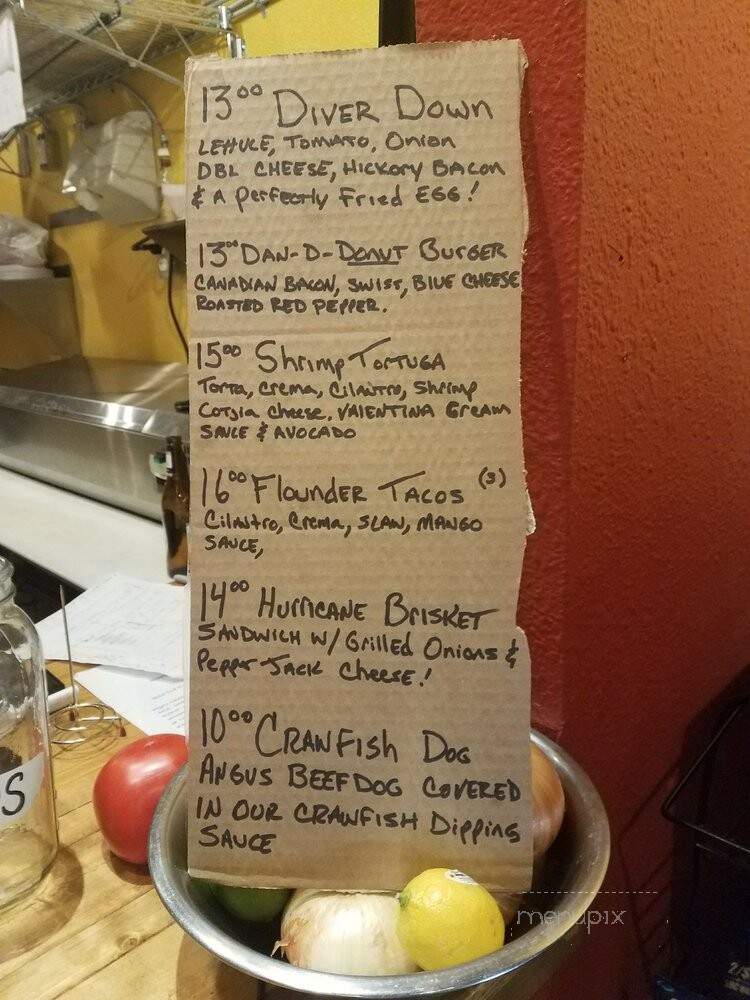 13⁰⁰ DIVER DOWN
LETTUCE, TOMATO, ONION
DBL CHEESE, HICKORY BACON
& A PERFECTLY FRIED EGG!
13⁰⁰ DAN-D-DONUT BURGER
CANADIAN BACON, SWISS, BLUE CHEESE
ROASTED RED PEPPER.
15⁰⁰ Shrimp TORTUGA
Torta, crema, Cilantro, Shrimp
Cotjia cheese, VALENTINA Cream
SAUCE & AVOCADO
16⁰⁰ Flounder TACOS (3)
Cilantro, Crema, SLAW, MANGO
SAUCE,
14⁰⁰ HURRICANE BRISKET
SANDWICH W/ Grilled Onions &
Pepper JACK Cheese!
10⁰⁰ CRAWFISH DOG
ANGUS BEEF DOG COVERED
IN OUR CRAWFISH Dipping
SAUCE
S
menupix